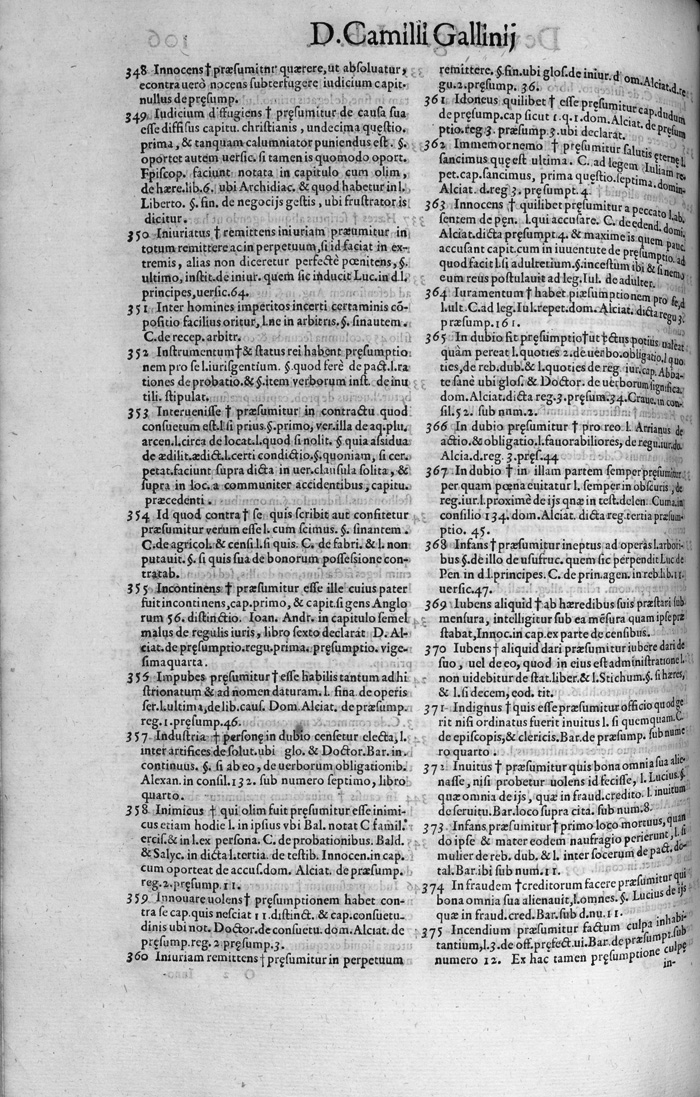 D. Camilli Gallinij
348 Innocens † præsumitur quærere, ut absoluatur,
econtra uerò nocens subterfugere iudicium capit.
nullus de pręsump.
349 Iudicium diffugiens † pręsumitur de causa sua
esse diffisus capitu. christianis, undecima quęstio.
prima, & tanquam calumniator puniendus est. §.
oportet autem uersic. si tamen is quomodo oport.
Fpiscop. faciunt notata in capitulo cum olim,
de hære. lib. 6. ubi Archidiac. & quod habetur in l.
Liberto. §. fin. de negocijs gestis, ubi frustrator is
dicitur.
350 Iniuriatus † remittens iniuriam præumitur in
totum remittere ac in perpetuum, si id faciat in ex-
tremis, alias non diceretur perfectè pœnitens, §.
ultimo, instit. de iniur. quem sic inducit Luc. in d. l.
principes, uersic. 64.
351 Inter homines imperitos incerti certaminis cō-
positio facilius oritur, l. ne in arbitris. §. sin autem.
C. de recep. arbitr.
352 Instrumentum † & status rei habent pręsumptio
nem pro se l. iurisgentium. §. quod ferè de pact. l. ra
tiones de probatio. & §. item verborum inst. de inu
tili. stipulat.
353 Interuenisse † præsumitur in contractu quod
consuetum est. l. si prius. §. primo, ver. illa de aq. plu.
arcen. l. circa de locat. l. quod si nolit. § quia assidua
de ædilit. ædict. l. certi condictio. §. quoniam, si cer.
petat. faciunt supra dicta in uer. clausula solita, &
supra in loc. a communiter accidentibus, capitu.
præcedenti.
354 Id quod contra † se quis scribit aut confitetur
præsumitur verum esse l. cum scimus. §. sin antem.
C. de agricol. & censi l. si quis. C. de fabri. & l. non
putauit. §. si quis sua de bonorum possessione con-
tratab.
355 Incontinens † præsumitur esse ille cuius pater
fuit incontinens, cap. primo, & capit. si gens Anglo
rum 56. distinctio. Ioan. Andr. in capitulo semel
malus de regulis iuris, libro sexto declarat D. Al-
ciat. de pręsumptio. regu. prima. pręsumptio. vige-
sima quarta.
356 Impubes pręsumitur † esse habilis tantum ad hi
strionatum & ad nomen daturam. l. fina. de operis
ser. l. ultima, de lib. caus. Dom Alciat. de præsump.
reg. 1. præsump. 46.
357 Industria † personę in dubio censetur electa, l.
inter artifices de solut. ubi glo. & Doctor. Bar. in l.
continuus. §. si ab eo, de uerborum obligationib.
Alexan. in consil. 132. sub numero septimo, libro
quarto.
358 Inimicus † qui olim fuit pręsumitur esse inimi-
cus etiam hodie l. in ipsius vbi Bal. notat C famil.
ercis. & in l. ex persona. C. de probationibus. Bald.
& Salyc. in dicta l. tertia. de testib. Innocen. in cap.
cum oporteat de accus. dom. Alciat. de præsump.
reg. 2. præsump. 11.
359 Innouare uolens † pręsumptionem habet con-
tra se cap. quis nesciat 11. distinct. & cap. consuetu-
dinis ubi not. Doctor. de consuetu. dom. Alciat. de
pręsump. reg. 2 præsump. 3.
360 Iniuriam remittens † pręsumitur in perpetuum
remittere. §. fin. ubi glos. de iniur. dom. Alciat. d. re
gu. 2. pręsump. 36.
361 Idoneus quilibet † esse præsumitur cap. dudum
de pręsump. cap sicut 1. q. 1. dom. Alciat. de pręsum
ptio. reg 3. præsump. 3. ubi declarat.
362 Immemor nemo † præsumitur salutis eternę l.
sancimus quę est ultima. C. ad legem Iuliam re-
pet. cap. sancimus, prima quęstio. septima. domin-
Alciat. d. reg 3. præsumpt. 4.
363 Innocens † quilibet pręsumitur a peccato l. ab-
sentem de pęn. l. qui accusare. C. de edend. domi.
Alciat. dicta præsumpt. 4. & maxime is quem pauci
accusant capit. cum in iuuentute de pręsumptio. ad
quod facit l. si adulterium. §. incestum ibi & si nemo
eum reus postulauit ad leg. Iul. de adulter.
364 Iuramentum † habet præsumptionem pro se, d
l. ult. C. ad leg. Iul. repet. dom. Alciat. dicta regu 3.
præsump. 161.
365 In dubio fit pręsumptio † ut actus potius ualeat
quàm pereat l. quoties 2. de uerbo. obligatio. l. quo
ties, de reb. dub. & l. quoties de reg iur. cap. Abba-
te sanè ubi glos. & Doctor. de uerborum significa.
dom. Alciat. dicta reg. 3. pręsum. 34. Craue. in con-
sil. 52. sub num. 2.
366 In dubio pręsumitur † pro reo l. Arrianus de
actio. & obligatio. l. fauorabiliores, de regu. iur. do.
Alcia. d reg. 3. pręs. 44
367 In dubio † in illam partem semper pręsumitur
per quam pœna euitatur l. semper in obscuris, de
reg. iur. l. proximè de ijs qnæ in test. delen. Cuma. in
consilio 134. dom. Alciat. dicta reg. tertia præsum-
ptio. 45.
368 Infans † præsumitur ineptus ad operas l. arbori-
bus §. de illo de usufruc. quem sic perpendit Luc. de
Pen in d l. principes. C. de prin. agen. in reb. lib. 11.
uersic. 47.
369 Iubens aliquid † ab hæredibus suis præstari sub
mensura, intelligitur sub ea mēsura quam ipse prę
stabat, Innoc. in cap. ex parte de censibus.
370 Iubens † aliquid dari præsumitur iubere dari de
suo, uel de eo, quod in eius est administratione l.
non uidebitur de stat. liber. & l. Stichum. §. si hæres,
& l. si decem, eod. tit.
371 Indignus † quis esse præsumitur officio quod ge
rit nisi ordinatus fuerit inuitus l. si quemquam C.
de episcopis, & clericis. Bar. de præsump. sub nume
ro quarto.
372 Inuitus † præsumitur quis bona omnia sua alie-
nasse, nisi probetur uolens id fecisse, l. Lucius. §.
quæ omnia de ijs, quæ in fraud. credito. l. inuitum
de seruitu. Bar. loco supra cita. sub num. 8.
373 Infans præsumitur † primo loco mortuus, quan
do ipse & mater eodem naufragio perierunt, l. si
mulier de reb. dub. & l. inter socerum de pact. do-
tal. Bar. ibi sub num. 11.
374 In fraudem † creditorum facere præsumitur qui
bona omnia sua alienauit, l. omnes. §. Lucius de ijs
quæ in fraud. cred. Bar. sub d. nu. 11.
375 Incendium præsumitur factum culpa inhabi-
tantium, l. 3. de off. pręfect. ui. Bar. de præsumpt. sub
numero 12. Ex hac tamen pręsumptione culpę
in-